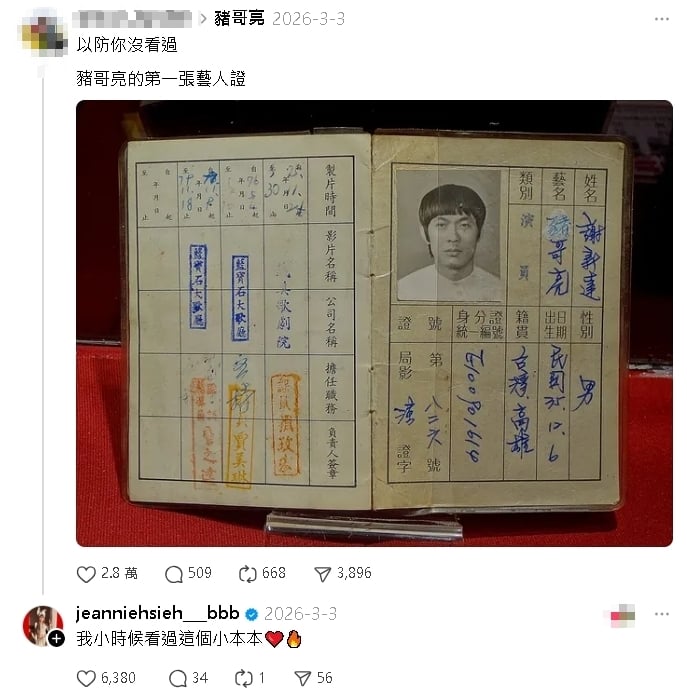 豬哥亮 2026-3-3
以防你沒看過
豬哥亮的第一張藝人證
姓名 謝新達 性別 男
藝名 豬哥亮 出生日期 民國35.12.6
類別 演員 籍貫 台灣高雄
身分證統一編號
證號 第八二六號
局影 證字
製片時間 影片名稱 公司名稱 擔任職務 負責人簽章
自 年 月 日 起
至 年 月 日 止
歌劇院
藍寶石大歌廳
藍寶石大歌廳
2.8 萬 509 668 3,896
jeanniehsieh___bbb 2026-3-3
我小時候看過這個小本本❤️🔥
6,380 34 1 56